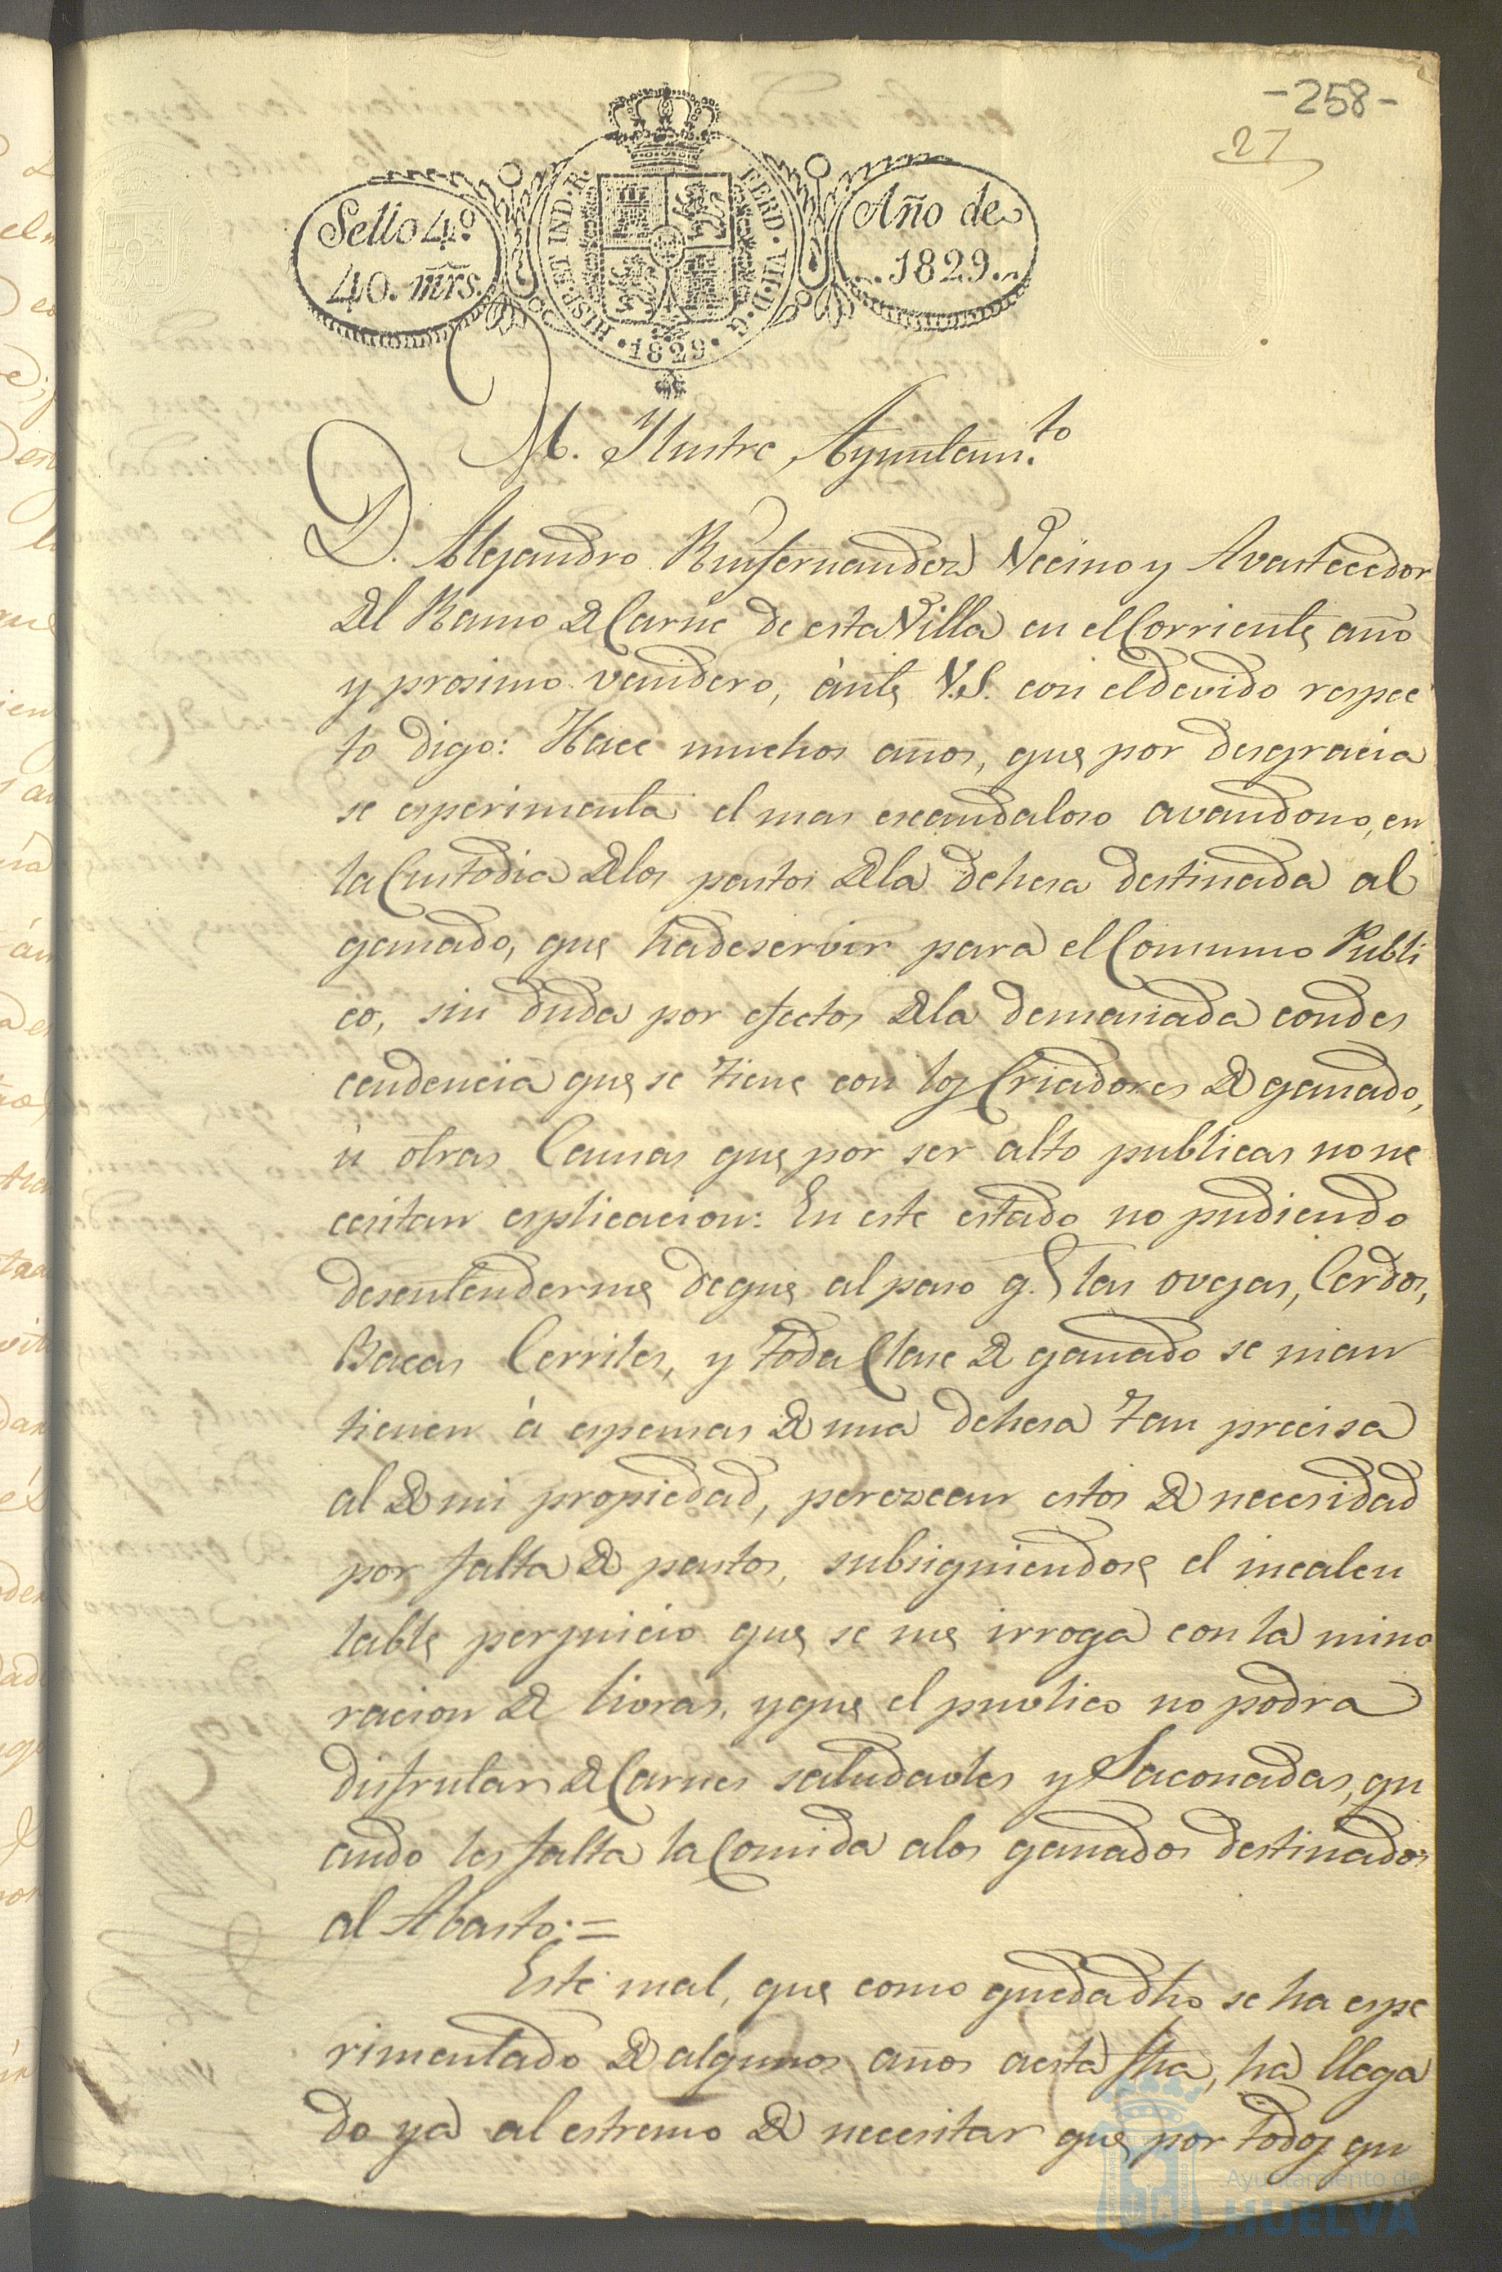 -258-
27
Sello 4.º
40. mrs.
HISP. ET IND. R. FERD. VII. D. G.
1829
Año de
1829.
M. Ylustre Ayuntam.to
D. Alejandro Ruifernandez Vecino y Avastecedor
del Ramo de Carne de esta Villa en el Corriente año
y prosimo venidero, ánte V.S. con el devido respec
to digo: Hace muchos años, que por desgracia
se esperimenta el mas escandaloso avandono, en
la Custodia de los pastos de la dehesa destinada al
ganado, que ha de servir para el Consumo Publi
co, sin duda por efectos de la demasiada condes
cendencia que se tiene con los Criadores de ganado,
ù otras Causas que por ser alto publicas no ne
cesitan esplicacion: En este estado no pudiendo
desentenderme de que al paso q. las ovejas, Cerdos,
Bacas Cerriles, y toda Clase de ganado se man
tienen à espensas de una dehesa tan precisa
al de mi propiedad, perezcan estos de necesidad
por falta de pastos, subsiguiendose el incalcu
lable perjuicio que se me irroga con la mino
racion de livras, y que el puvlico no podra
disfrutar de Carnes saludavles y Saconadas, qu
ando les falta la Comida a los ganados destinados
al Abasto: =
Este mal, que como queda dho se ha espe
rimentado de algunos años a esta fha, ha llega
do ya al estremo de necesitar que por todos qu
Ayuntamiento de
HUELVA